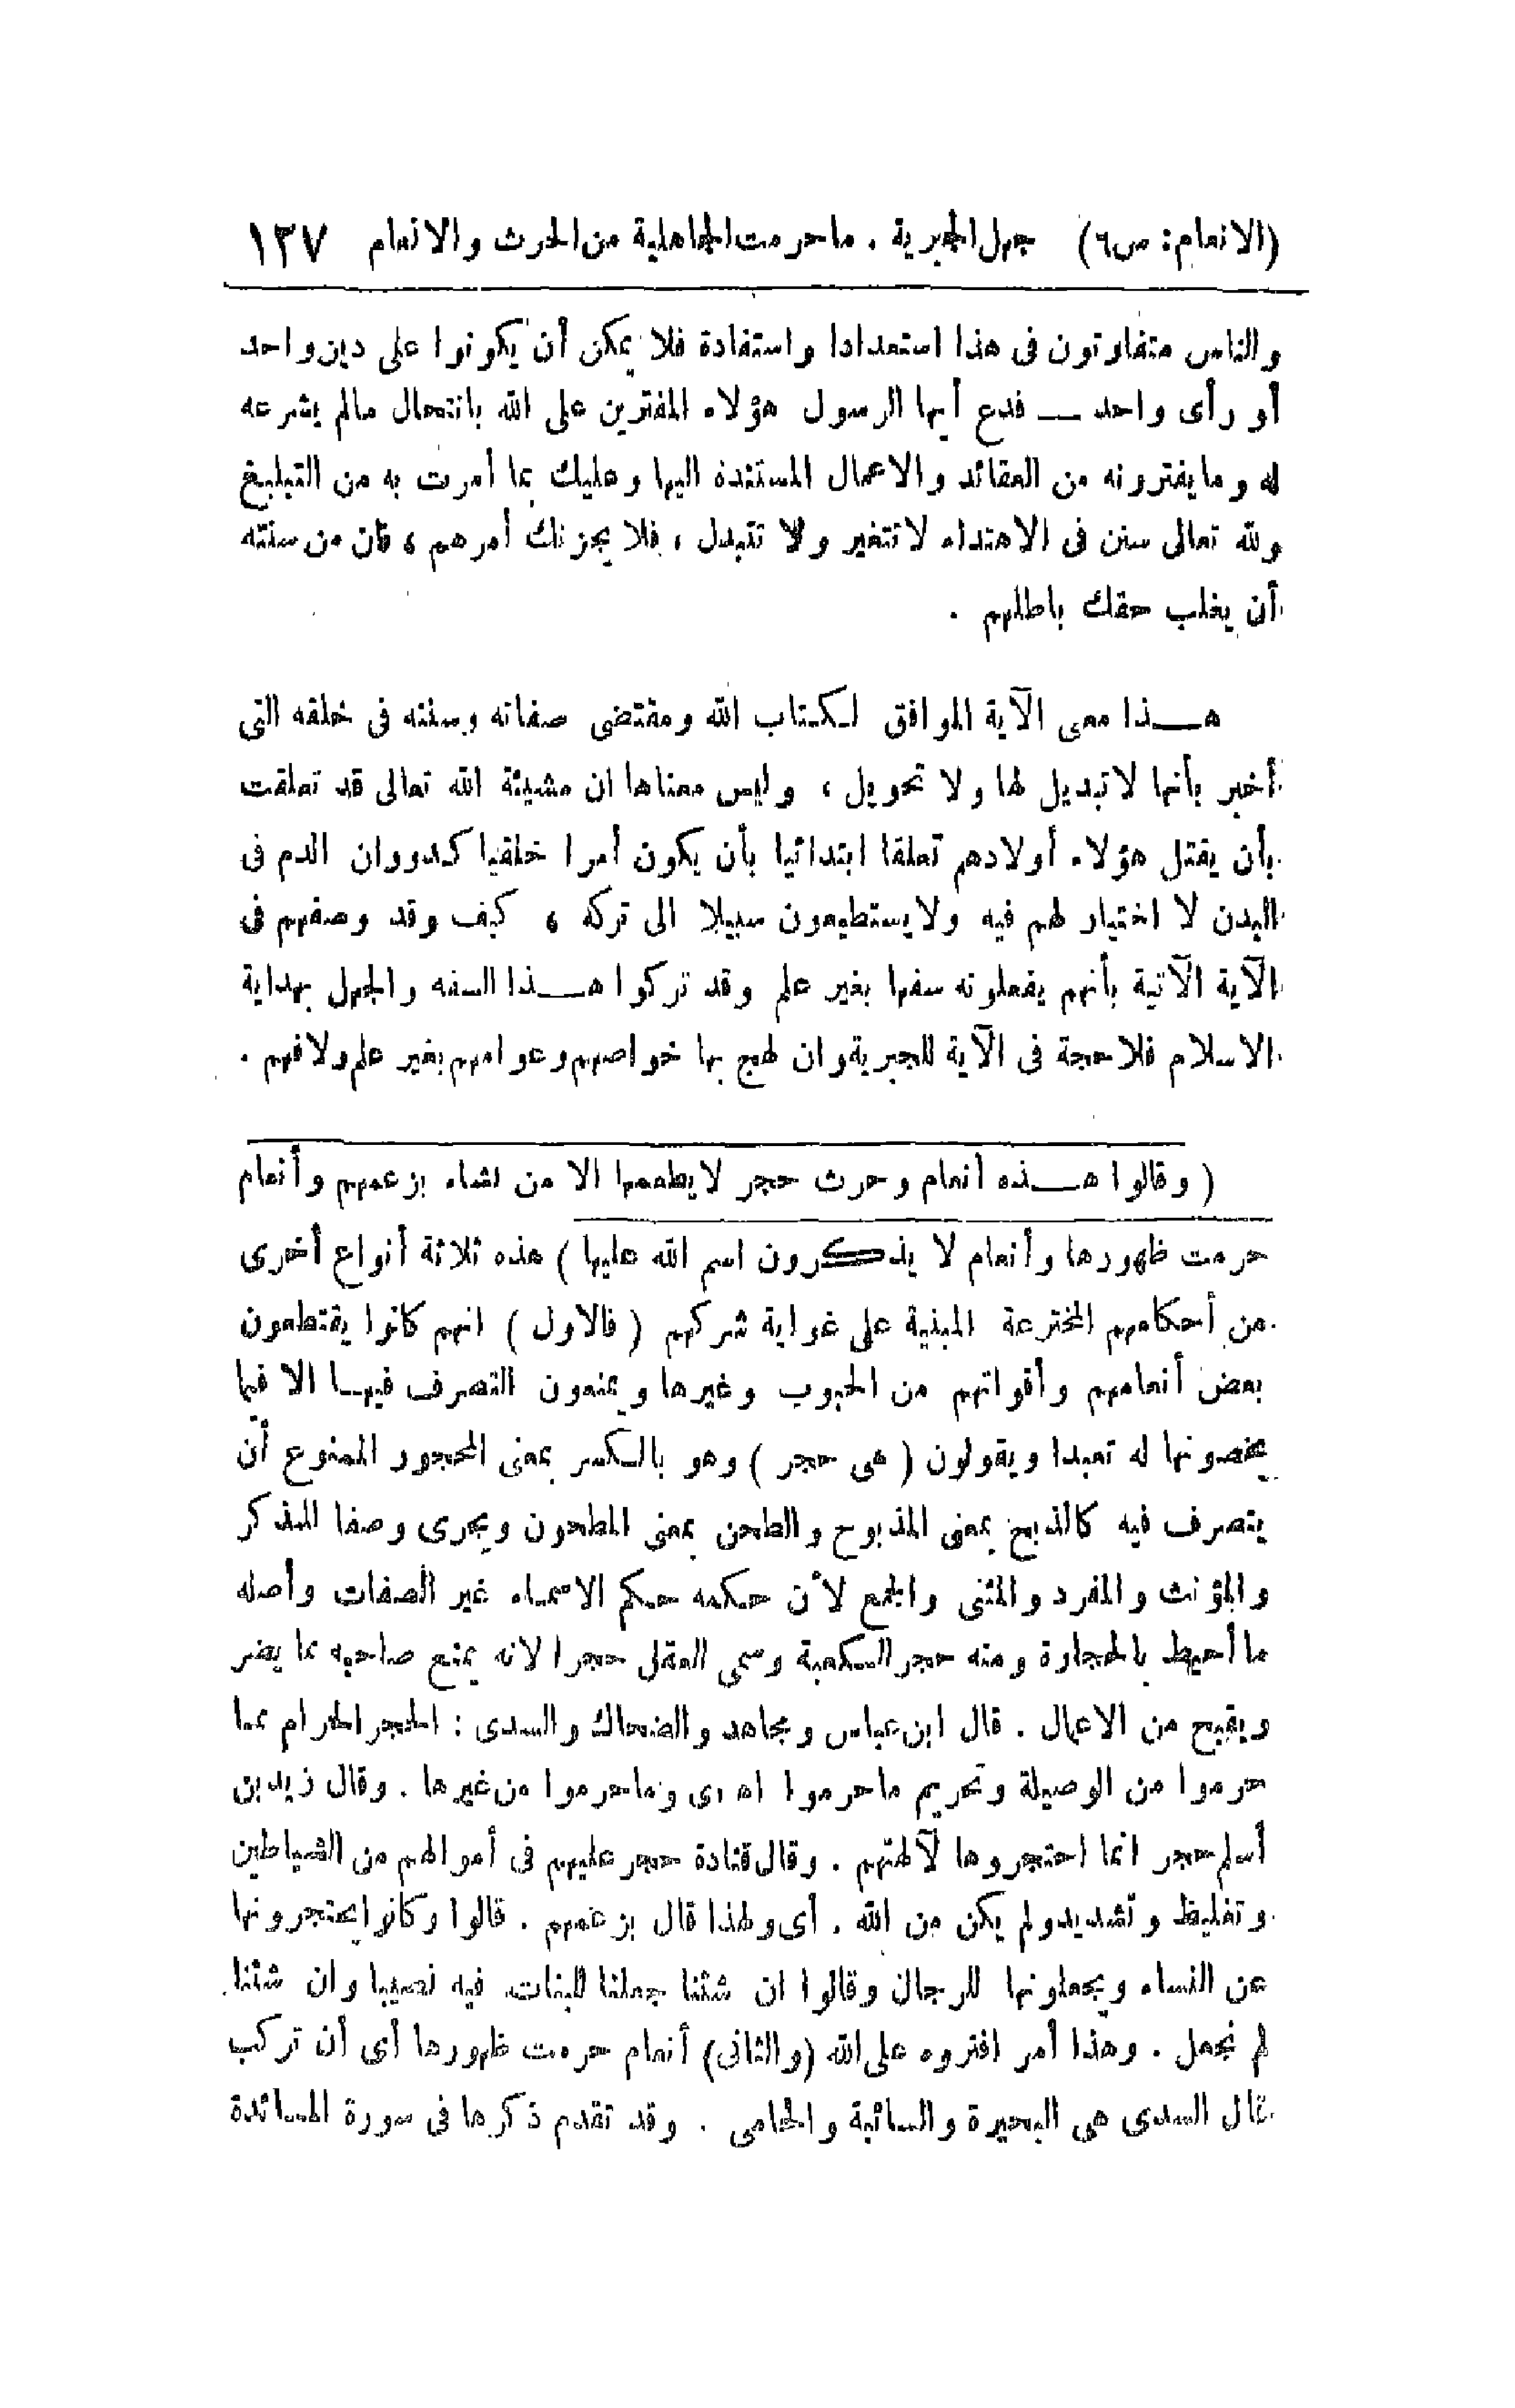 (الانعام: س٦) جهل الجبرية . ما حرمت الجاهلية من الحرث والانعام ١٣٧
والناس متفاوتون فى هذا استعدادا واستفادة فلا يمكن أن يكونوا على دين واحد
أو رأى واحد ـــ فدع أيها الرسول هؤلاء المفترين على الله بانتحال مالم يشرعه
له وما يفترونه من العقائد والاعمال المستندة اليها وعليك بما أمرت به من التبليغ
ولله تعالى سنن فى الاهتداء لا تتغير ولا تتبدل ، فلا يحزنك أمرهم ، فان من سنته
أن يغلب حقك باطلهم .
هــذا معنى الآية الموافق لكتاب الله ومقتضى صفاته وسننه فى خلقه التى
أخبر بأنها لا تبديل لها ولا تحويل ، وليس معناها ان مشيئة الله تعالى قد تعلقت
بأن يقتل هؤلاء أولادهم تعلقا ابتدائيا بأن يكون أمرا خلقيا كدوران الدم فى
البدن لا اختيار لهم فيه ولا يستطيعون سبيلا الى تركه ، كيف وقد وصفهم فى
الآية الآتية بأنهم يفعلونه سفها بغير علم وقد تركوا هــذا السفه والجهل بهداية
الاسلام فلا حجة فى الآية للجبرية وان لهج بها خواصهم وعوامهم بغير علم ولا فهم .
( وقالوا هــذه أنعام وحرث حجر لا يطعمها الا من نشاء بزعمهم وأنعام
حرمت ظهورها وأنعام لا يذكرون اسم الله عليها ) هذه ثلاثة أنواع أخرى
من أحكامهم المخترعة المبنية على غواية شركهم ( فالاول ) انهم كانوا يقتطعون
بعض أنعامهم وأقواتهم من الحبوب وغيرها ويمنعون التصرف فيهــا الا فيما
يخصونها له تعبدا ويقولون ( هى حجر ) وهو بالكسر بمعنى المحجور الممنوع أن
يتصرف فيه كالذبح بمعنى المذبوح والطحن بمعنى المطحون ويجرى وصفا للمذكر
والمؤنث والمفرد والمثنى والجمع لأن حكمه حكم الاسماء غير الصفات وأصله
ما أحيط بالحجارة ومنه حجر الكعبة وسمى العقل حجرا لانه يمنع صاحبه مما يضر
ويقبح من الاعمال . قال ابن عباس ومجاهد والضحاك والسدى : الحجر الحرام مما
حرموا من الوصيلة وتحريم ما حرموا اه رى وما حرموا من غيرها . وقال زيد بن
أسلم حجر انما احتجروها لآلهتهم . وقال قتادة حجر عليهم فى أموالهم من الشياطين
وتغليظ وتشديد ولم يكن من الله . أى ولهذا قال بزعمهم . قالوا وكانوا يحتجرونها
عن النساء ويجعلونها للرجال وقالوا ان شئنا جعلنا للبنات فيه نصيبا وان شئنا
لم نجعل . وهذا أمر افتروه على الله (والثانى) أنعام حرمت ظهورها أى أن تركب
قال السدى هى البحيرة والسائبة والحامى . وقد تقدم ذكرها فى سورة المائدة